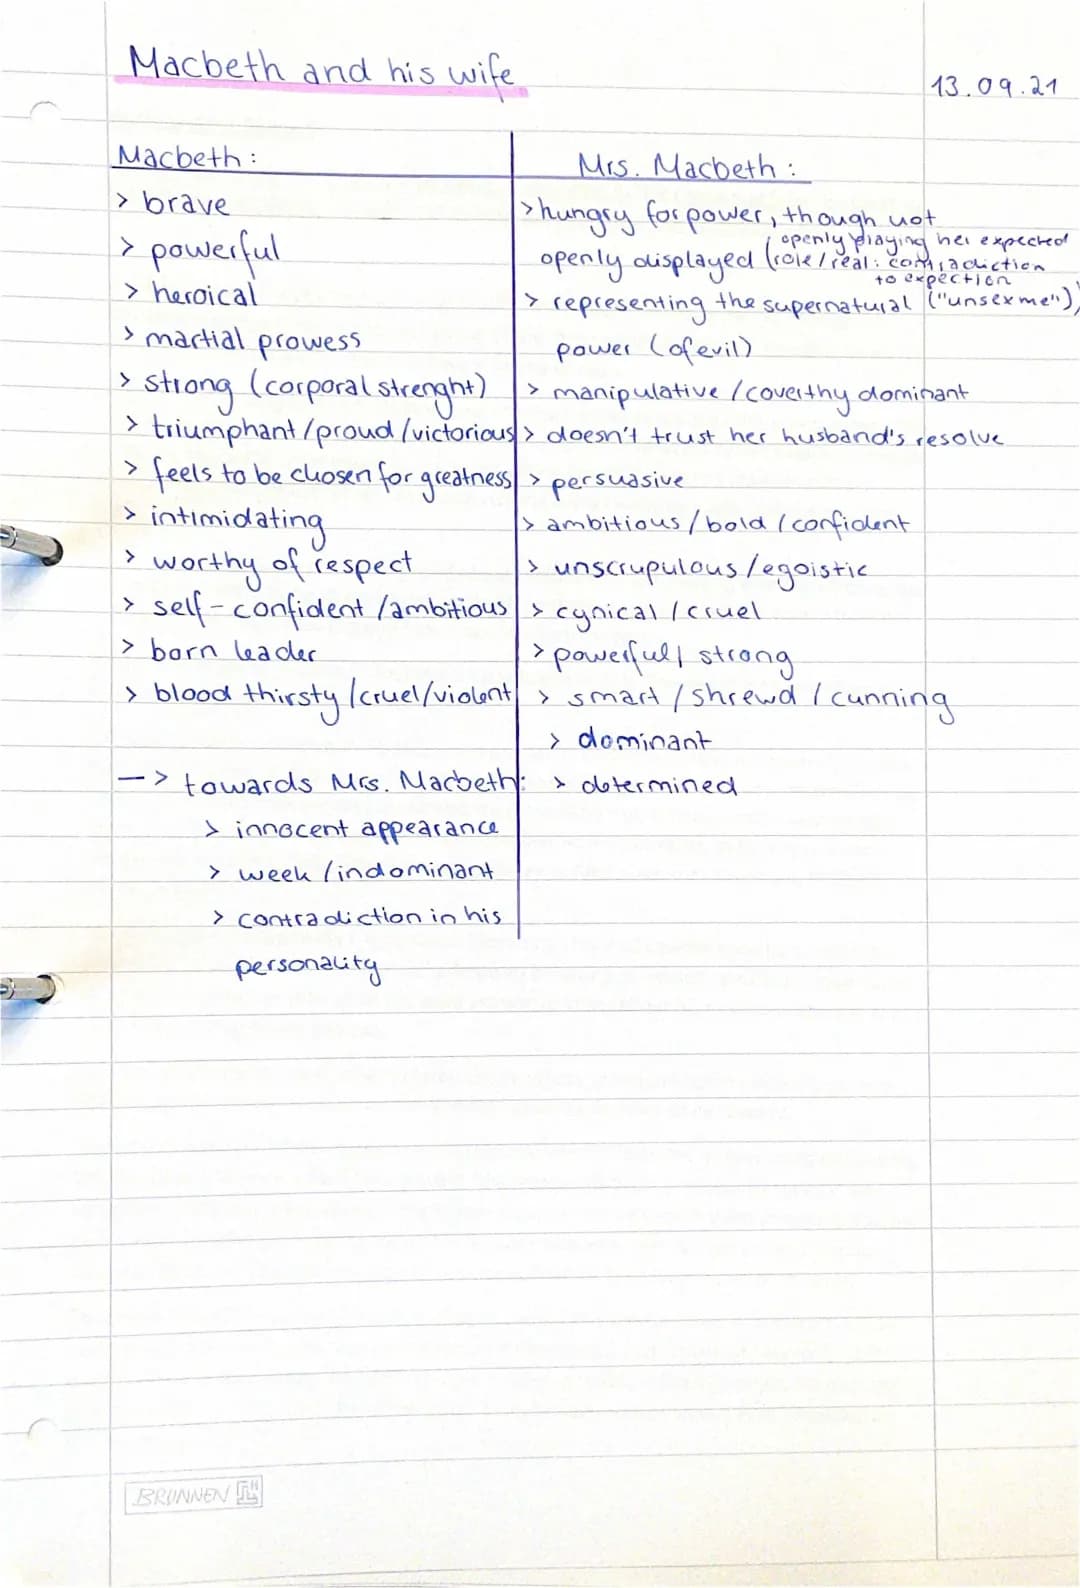 Macbeth and his wife
13.09.21
Macbeth:
> brave
> powerful
> heroical
> martial prowess
> strong (corporal strenght)
> triumphant/proud/victorious
> feels to be chosen for greatness
> intimidating
> worthy of respect
> self-confident/ambitious
> born leader
> blood thirsty/cruel/violent
—> towards Mrs. Macbeth:
> innocent appearance
> week/indominant
> contradiction in his
personality
Mrs. Macbeth:
> hungry for power, though not
openly displayed (openly playing her expected
role/real: contradiction
to expection
("unsex me"))
> representing the supernatural
power (of evil)
> manipulative/coverthy dominant
> doesn't trust her husband's resolve
> persuasive
> ambitious/bold/confident
> unscrupulous/egoistic
> cynical/cruel
> powerful/strong
> smart/shrewd/cunning
> dominant
> determined
BRUNNEN